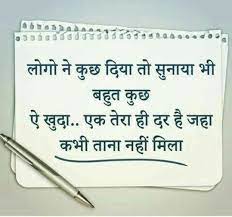 लोगो ने कुछ दिया तो सुनाया भी
बहुत कुछ
ऐ खुदा.. एक तेरा ही दर है जहा
कभी ताना नहीं मिला